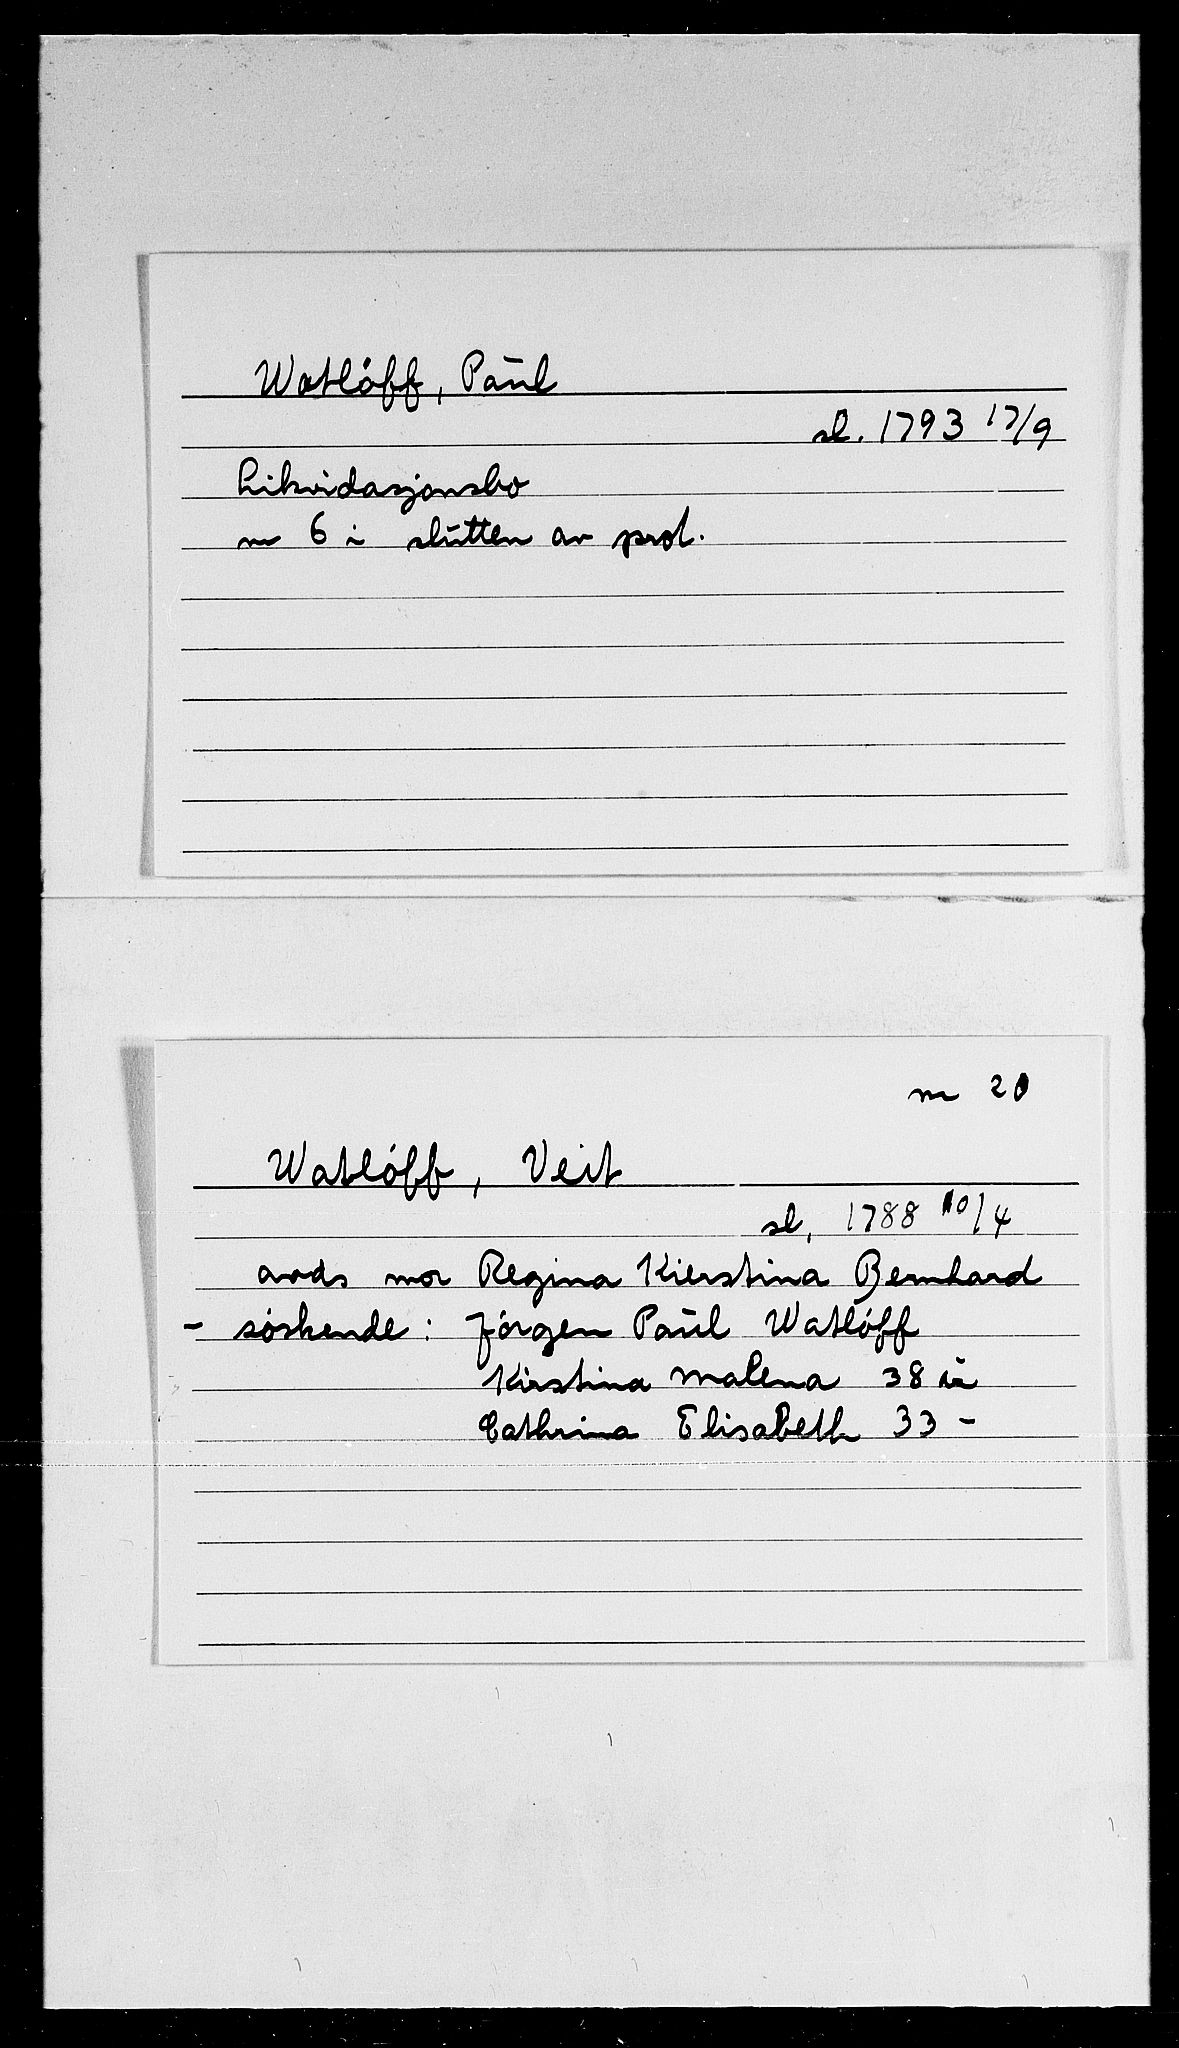 Watløff, Paul
sl. 1793 17/9
Likvidasjonsbo
nr 6 i slutten av prot.
nr 20
Watløff, Veit
sl. 1788 10/4
avds mor Regina Kierstina Bernhard
- søskende: Jørgen Paul Watløff
Kirstina Malena 38 år
Cathrina Elisabeth 33 -